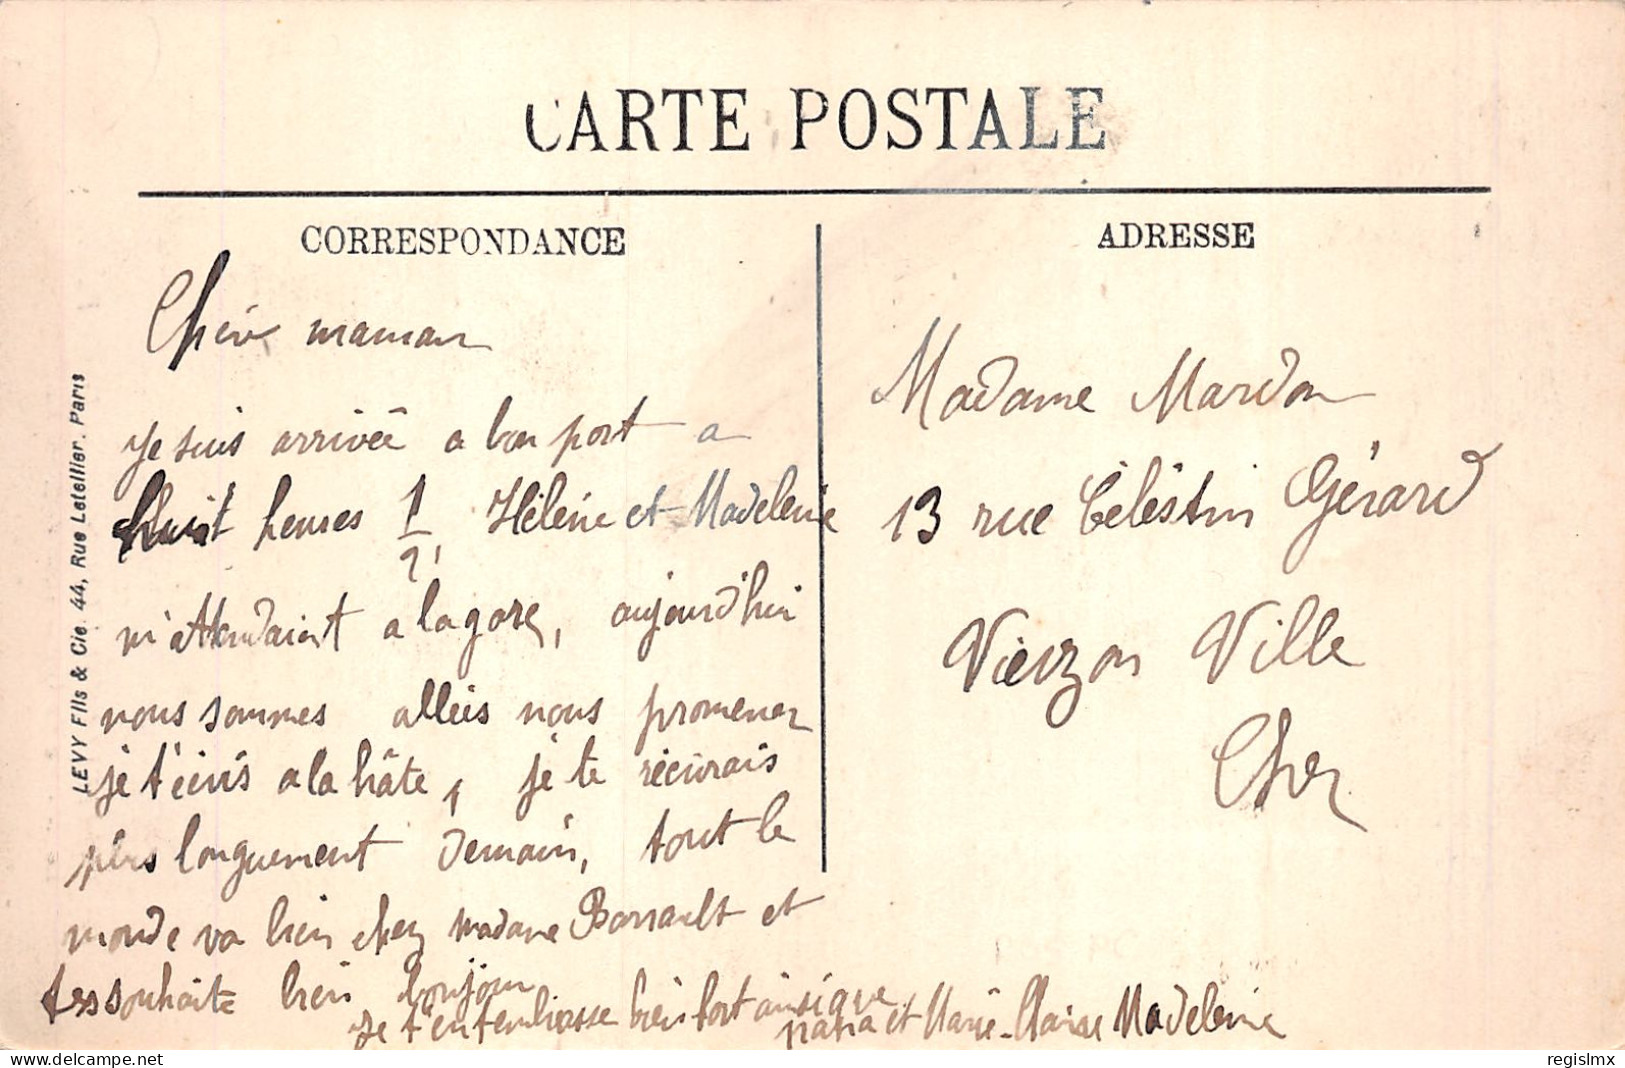 CARTE POSTALE
CORRESPONDANCE
Chère maman
je suis arrivée a bon port a
huit heures 1/2, Hélène et Madeleine
m'attendaint a la gare, aujourd'hui
nous sommes allés nous promener
je t'écris a la hâte, je te récrirais
plus longuement demain, tout le
monde va bien chez madame Barrault et
te souhaite bien bonjour
je t'embrasse bien fort ainsi que
papa et Marie-Claire Madeleine
ADRESSE
Madame Mardon
13 rue Célèstin Gérard
Vierzon Ville
Cher
LEVY Fils & Cie. 44, Rue Letellier. Paris
regislmx